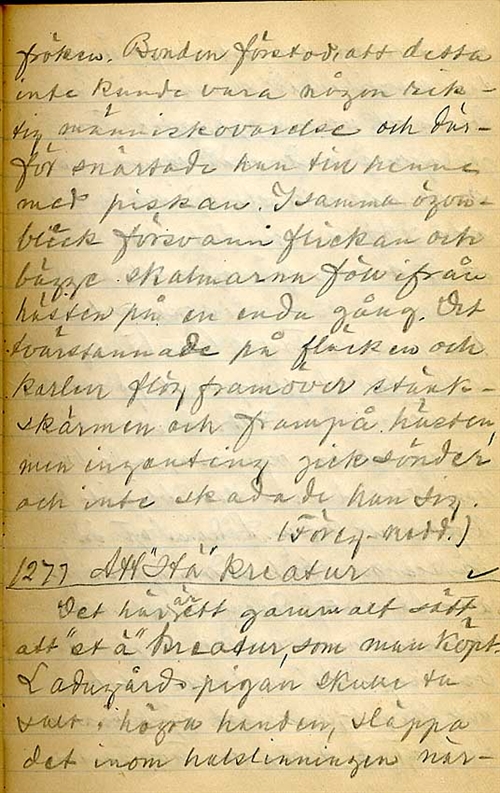 fröken. Bonden förstod, att detta
inte kunde vara någon rik-
tig människovarelse och där-
för snärtade han till henne
med piskan. I samma ögon-
blick försvann flickan och
bägge skalmarna föll ifrån
hästen på en enda gång. Det
tvärstannade på fläcken och
karlen flög framöver stänk-
skärmen och frampå hästen,
men ingenting gick sönder
och inte skadade han sig.
(Föreg. medd.)
1277 Att "stä" kreatur
Det här är ett gammalt sätt
att "stä" kreatur, som man köpt.
Ladugårdspigan skulle ta
salt i högra handen, släppa
det inom halslinningen när-